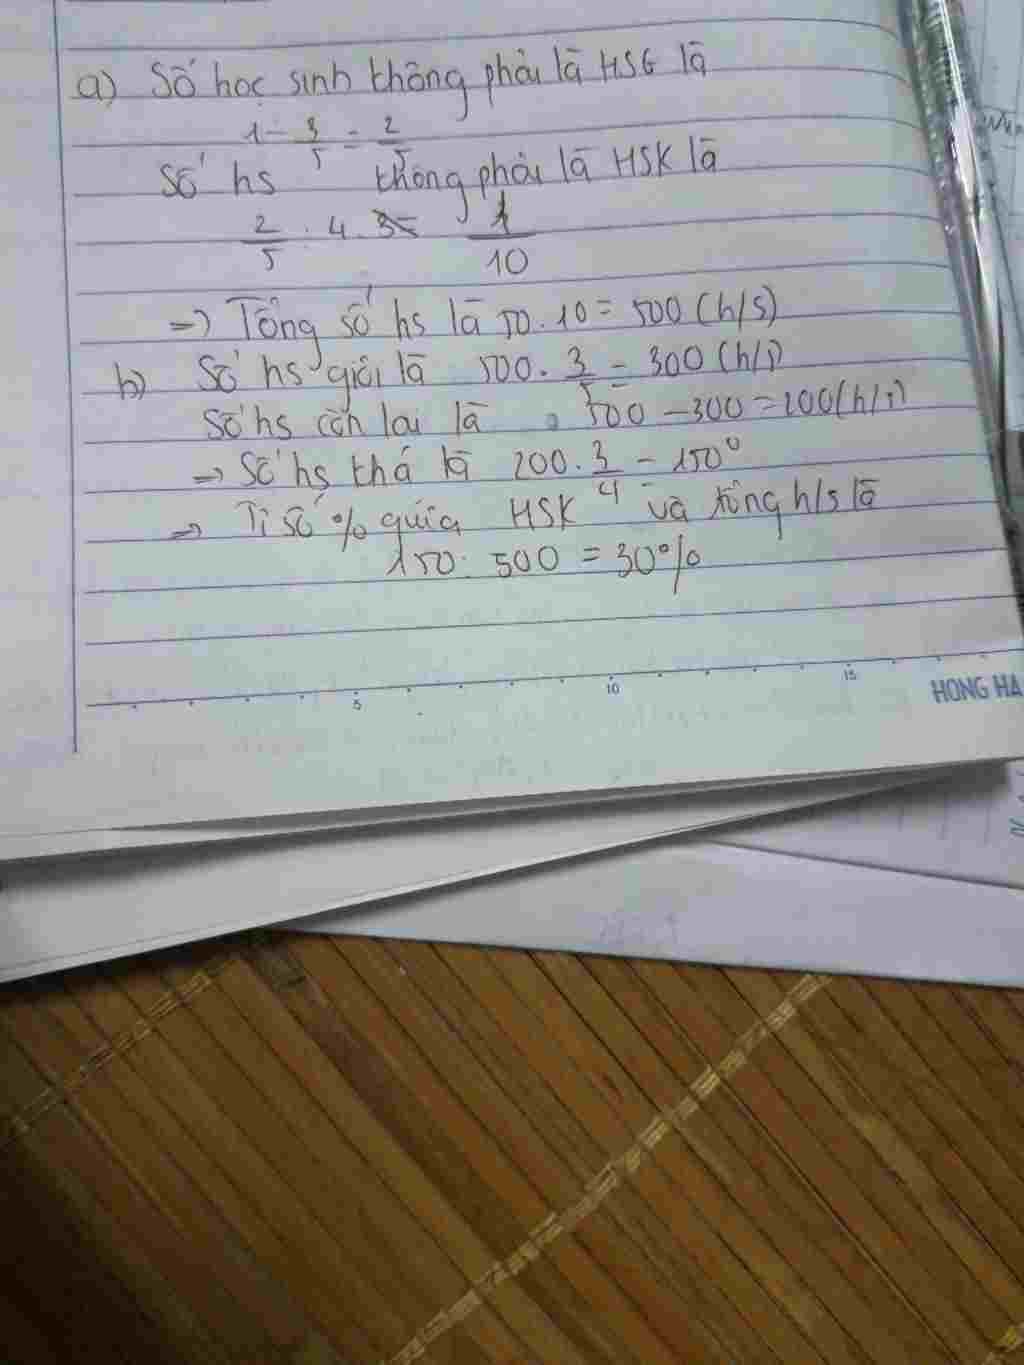 a) Số học sinh không phải là HSG là
1 - 3/5 = 2/5
Số hs không phải là HSK là
2/5 : 4 = 1/10
=> Tổng số hs là 50.10 = 500 (h/s)
b) Số hs giỏi là 500. 3/5 = 300 (h/s)
Số hs còn lại là 500 - 300 = 200 (h/s)
-> Số hs khá là 200. 3/4 = 150
=> Tỉ số % giữa HSK và tổng h/s là
150: 500 = 30%
5 10 15
HONG HA